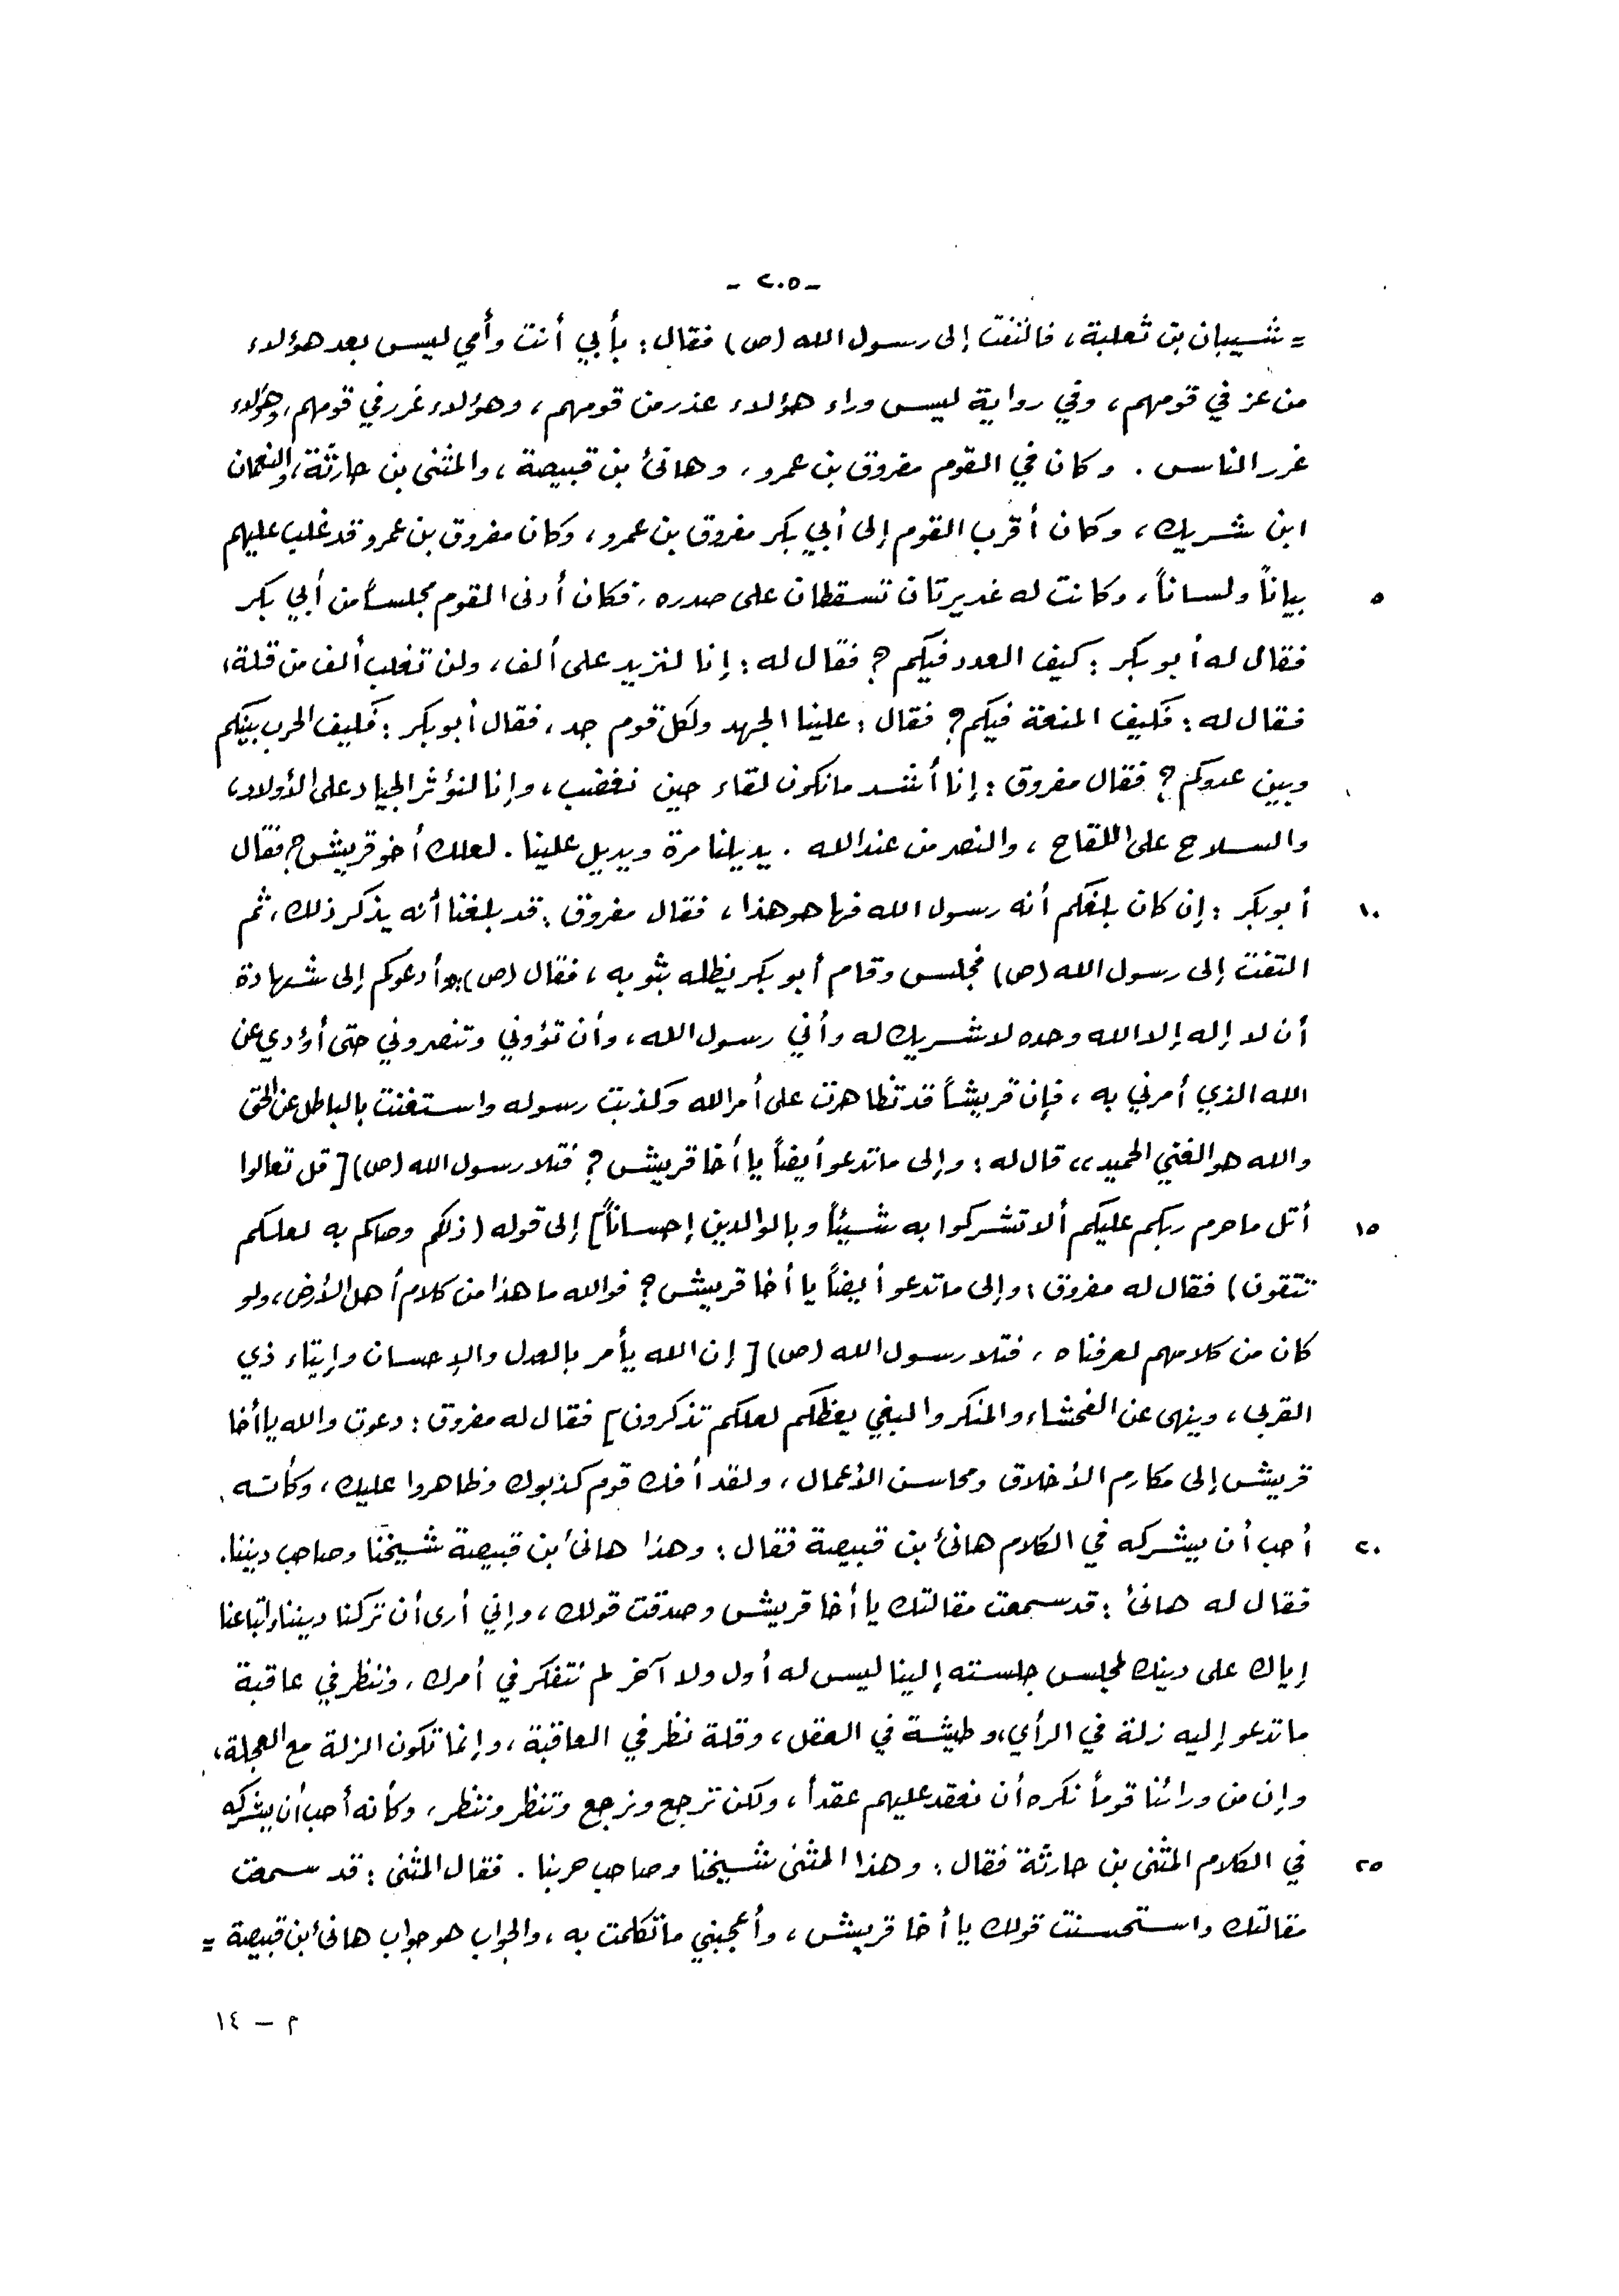 - ٢٠٥ -
= شيبان بن ثعلبة، فالتفت إلى رسول الله (ص) فقال: بأبي أنت وأمي ليس بعد هؤلاء
من عز في قومهم، وفي رواية ليس وراء هؤلاء عذر من قومهم، وهؤلاء غرر في قومهم، وهؤلاء
غرر الناس. وكان في القوم مفروق بن عمرو، وهانئ بن قبيصة، والمثنى بن حارثة، والنعمان
ابن شريك، وكان أقرب القوم إلى أبي بكر مفروق بن عمرو، وكان مفروق بن عمرو قد غلب عليهم
٥ بياناً ولساناً، وكانت له غديرتان تسقطان على صدره، فكان أدنى القوم مجلساً من أبي بكر
فقال له أبو بكر: كيف العدد فيكم؟ فقال له: إنا لنزيد على ألف، ولن تغلب ألف من قلة،
فقال له: فكيف المنعة فيكم؟ فقال: علينا الجهد ولكل قوم جد، فقال أبو بكر: فكيف الحرب بينكم
وبين عدوكم؟ فقال مفروق: إنا أشد ما نكون لقاء حين نغضب، وإنا لنؤثر الجياد على الأولاد،
والسلاح على اللقاح، والنصر من عند الله. يديلنا مرة ويديل علينا. لعلك أخو قريش؟ فقال
١٠ أبو بكر: إن كان بلغكم أنه رسول الله فها هو هذا، فقال مفروق: قد بلغنا أنه يذكر ذلك، ثم
التفت إلى رسول الله (ص) فجلس وقام أبو بكر يظله بثوبه، فقال (ص): «أدعوكم إلى شهادة
أن لا إله إلا الله وحده لا شريك له وأني رسول الله، وأن تؤوني وتنصروني حتى أؤدي عن
الله الذي أمرني به، فإن قريشاً قد تظاهرت على أمر الله وكذبت رسوله واستغنت بالباطل عن الحق
والله هو الغني الحميد،، قال له: وإلى ما تدعو أيضاً يا أخا قريش؟ فتلا رسول الله (ص) [قل تعالوا
١٥ أتل ما حرم ربكم عليكم ألا تشركوا به شيئاً وبالوالدين إحساناً] إلى قوله (ذلكم وصاكم به لعلكم
تتقون) فقال له مفروق: وإلى ما تدعو أيضاً يا أخا قريش؟ فوالله ما هذا من كلام أهل الأرض، ولو
كان من كلامهم لعرفناه، فتلا رسول الله (ص) [إن الله يأمر بالعدل والإحسان وإيتاء ذي
القربى، وينهى عن الفحشاء والمنكر والبغي يعظكم لعلكم تذكرون] فقال له مفروق: دعوت والله يا أخا
قريش إلى مكارم الأخلاق ومحاسن الأعمال، ولقد أفك قوم كذبوك وظاهروا عليك، وكأنه
٢٠ أحب أن يشركه في الكلام هانئ بن قبيصة فقال: وهذا هانئ بن قبيصة شيخنا وصاحب ديننا.
فقال له هانئ: قد سمعت مقالتك يا أخا قريش وصدقت قولك، وإني أرى أن تركنا ديننا واتباعنا
إياك على دينك لمجلس جلسته إلينا ليس له أول ولا آخر لم نتفكر في أمرك، وننظر في عاقبة
ما تدعو إليه زلة في الرأي، وطيشة في العقل، وقلة نظر في العاقبة، وإنما تكون الزلة مع العجلة،
وإن من ورائنا قوماً نكره أن نعقد عليهم عقداً، ولكن ترجع ونرجع وتنظر وننظر، وكأنه أحب أن يشركه
٢٥ في الكلام المثنى بن حارثة فقال: وهذا المثنى شيخنا وصاحب حربنا. فقال المثنى: قد سمعت
مقالتك واستحسنت قولك يا أخا قريش، وأعجبني ما تكلمت به، والجواب هو جواب هانئ ابن قبيصة =
م - ١٤